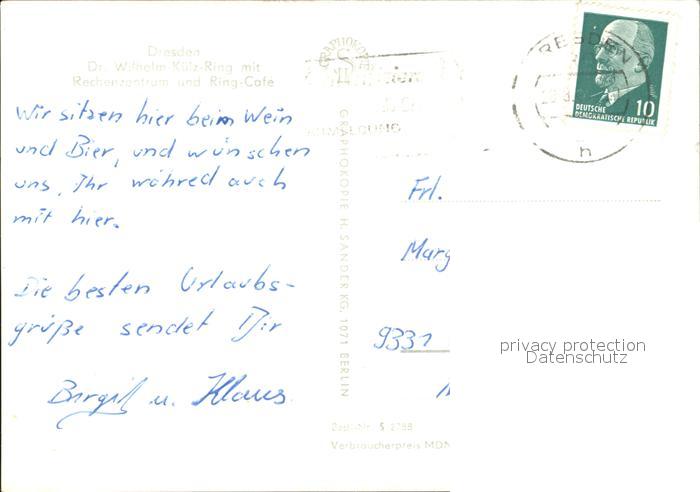 Dresden
Dr. Wilhelm-Külz-Ring mit
Rechenzentrum und Ring-Café
Wir sitzen hier beim Wein
und Bier, und wünschen
uns, Ihr währed auch
mit hier.
Die besten Urlaubs-
grüße sendet Dir
Birgit u. Klaus
GRAPHOKOPIE H. SANDER KG, 1071 BERLIN
GRAPHOKOPIE
DRESDEN
h
DEUTSCHE
DEMOKRATISCHE REPUBLIK
10
Frl.
Marg
9331
privacy protection
Datenschutz
Best.-Nr. S 2788
Verbraucherpreis MDN